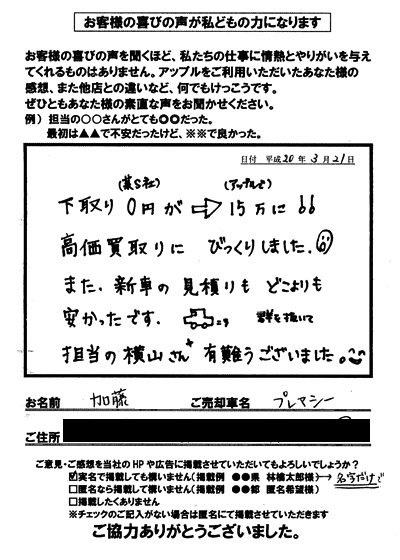 お客様の喜びの声が私どもの力になります
お客様の喜びの声を聞くほど、私たちの仕事に情熱とやりがいを与え
てくれるものはありません。アップルをご利用いただいたあなた様の
感想、また他店との違いなど、何でもけっこうです。
ぜひともあなた様の素直な声をお聞かせください。
例）担当の○○さんがとても○○だった。
最初は▲▲で不安だったけど、※※で良かった。
日付 平成20年3月21日
(某S社) (アップルで)
下取り 0円が ⇨ 15万に!!
高価買取りに びっくりしました。
また、新車の 見積りも どこよりも
安かったです。 群を抜いて
担当の横山さん 有難うございました。
お名前 加藤 ご売却車名 プレマシー
ご住所
ご意見・ご感想を当社のHPや広告に掲載させていただいてもよろしいでしょうか？
☑実名で掲載しても構いません(掲載例 ●●県 林檎太郎様) → 名字だけで
□匿名なら掲載して構いません(掲載例 ●●都 匿名希望様)
□掲載したくありません
※チェックのご記入がない場合は匿名にて掲載させていただきます
ご協力ありがとうございました。